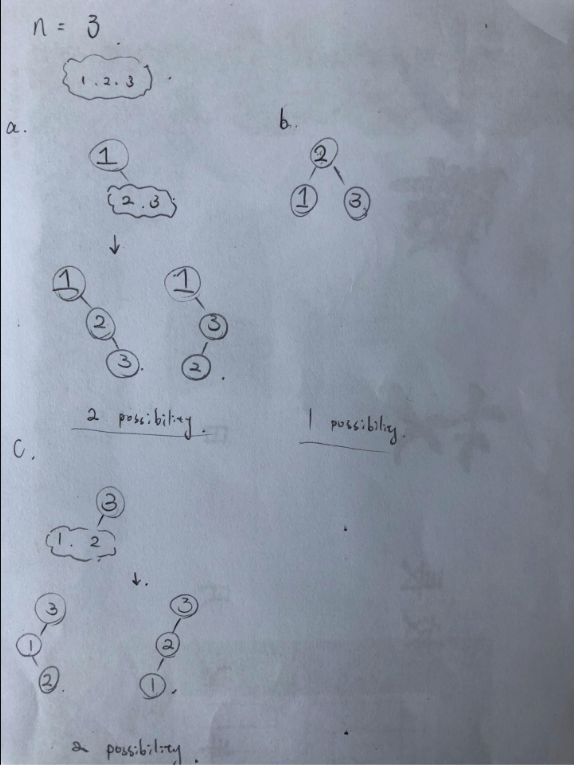 n = 3
1 . 2 . 3
a.
1
2 . 3
1
2
3
1
3
2
2 possibility.
b.
2
1
3
1 possibility.
C.
3
1 . 2
3
1
2
3
2
1
2 possibility.